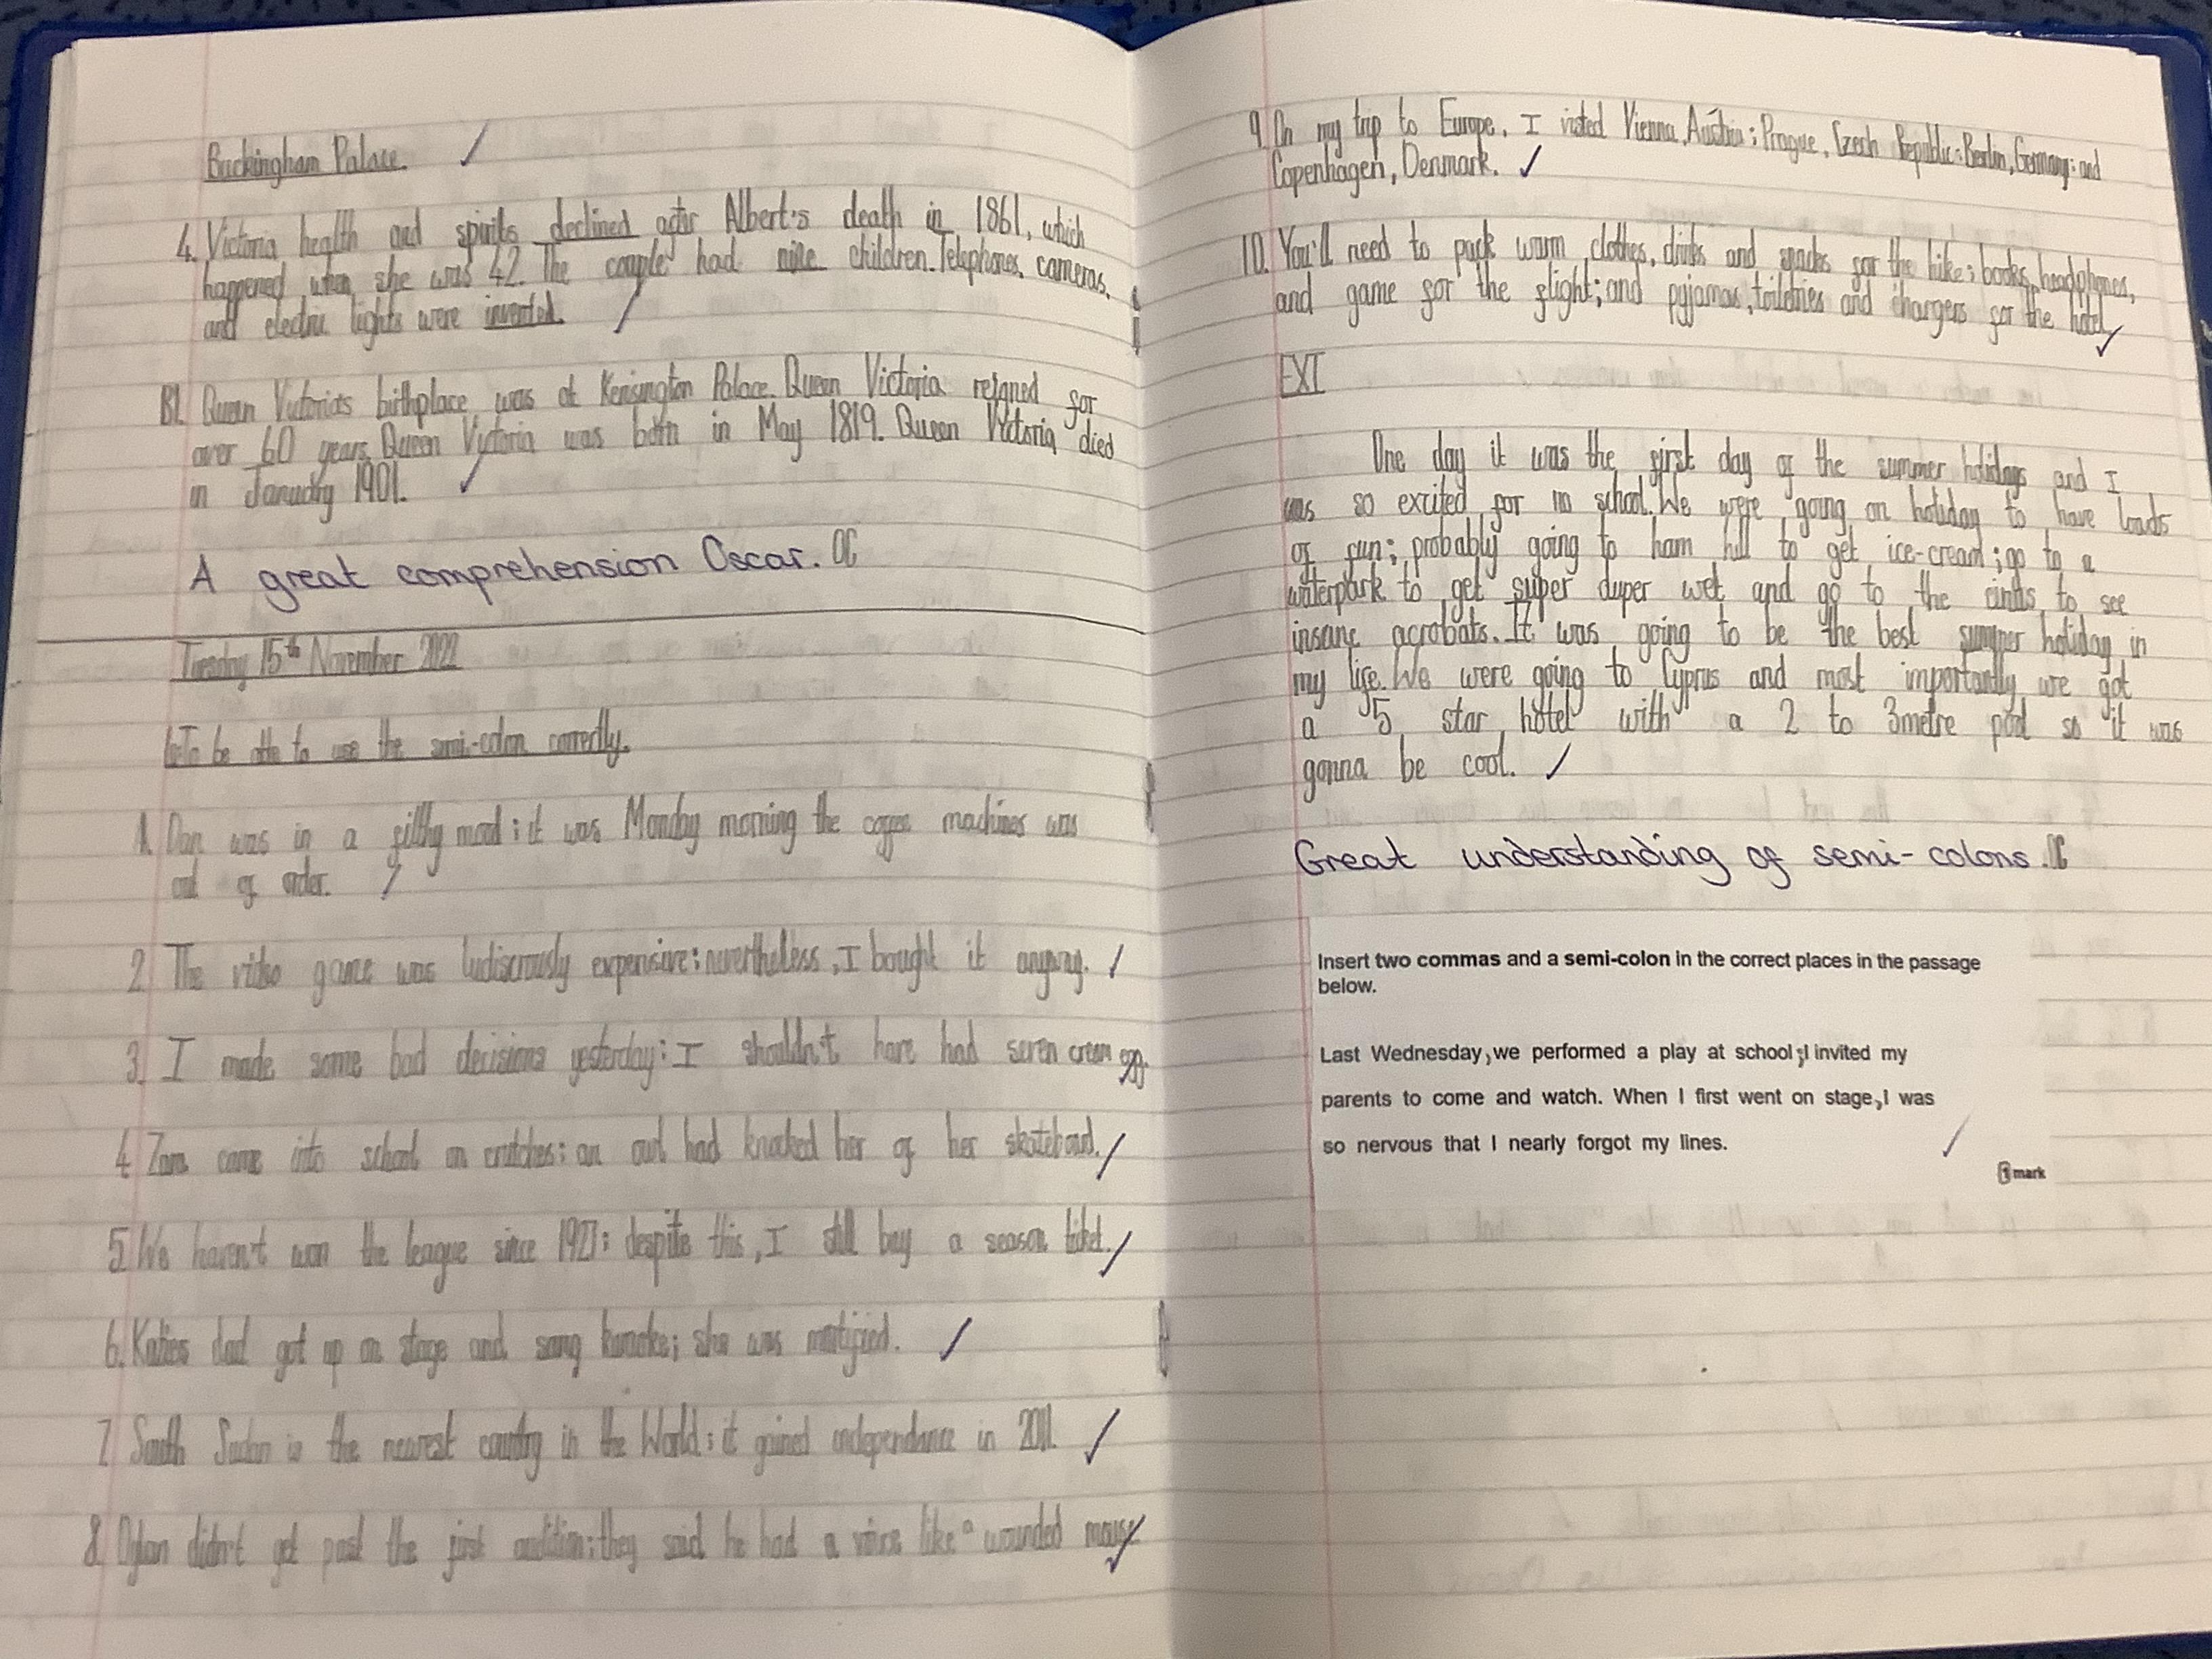 Buckingham Palace.
4. Victoria health and spirits declined after Albert's death in 1861, which
happened when she was 42. The couple had nine children. Telephones, cameras,
and electric lights were invented.
B1. Queen Victoria's birthplace was at Kensington Palace. Queen Victoria reigned for
over 60 years. Queen Victoria was born in May 1819. Queen Victoria died
in January 1901.
A great comprehension Oscar. OC
Tuesday 15th November 2022
To be able to use the semi-colon correctly.
1. Dan was in a filthy mood; it was Monday morning the coffee machines was
out of order.
2. The video game was ludiscrously expensive; nevertheless, I bought it anyway.
3. I made some bad decisions yesterday; I shouldn't have had seven cream egg.
4 Zara came into school on crutches; an owl had knocked her of her skateboard.
5. We haven't won the league since 1927; despite this, I still buy a season ticket.
6. Katies dad got up on stage and sang karaoke; she was mortified.
7. South Sudan is the newest country in the World; it gained independance in 2011.
8. Dylan didn't get past the first audition; they said he had a voice like a wounded mouse.
9. On my trip to Europe, I visted Vienna, Austria; Prague, Czech Republic; Berlin, Germany; and
Copenhagen, Denmark.
10. You'll need to pack warm clothes, drinks and snacks for the hike; books, headphones,
and game for the flight; and pyjamas, toiletries and chargers for the hotel.
EXT
One day it was the first day of the summer holidays and I
was so excited for no school. We were going on holiday to have loads
of fun; probably going to ham hill to get ice-cream; go to a
waterpark to get super duper wet and go to the to see
insane acrobats. It was going to be the best summer holiday in
my life. We were going to Cyprus and most importantly we got
a 5 star hotel with a 2 to 3metre pool so it was
gonna be cool.
Great understanding of semi-colons. OC
Insert two commas and a semi-colon in the correct places in the passage
below.
Last Wednesday, we performed a play at school; I invited my
parents to come and watch. When I first went on stage, I was
so nervous that I nearly forgot my lines.
1 mark